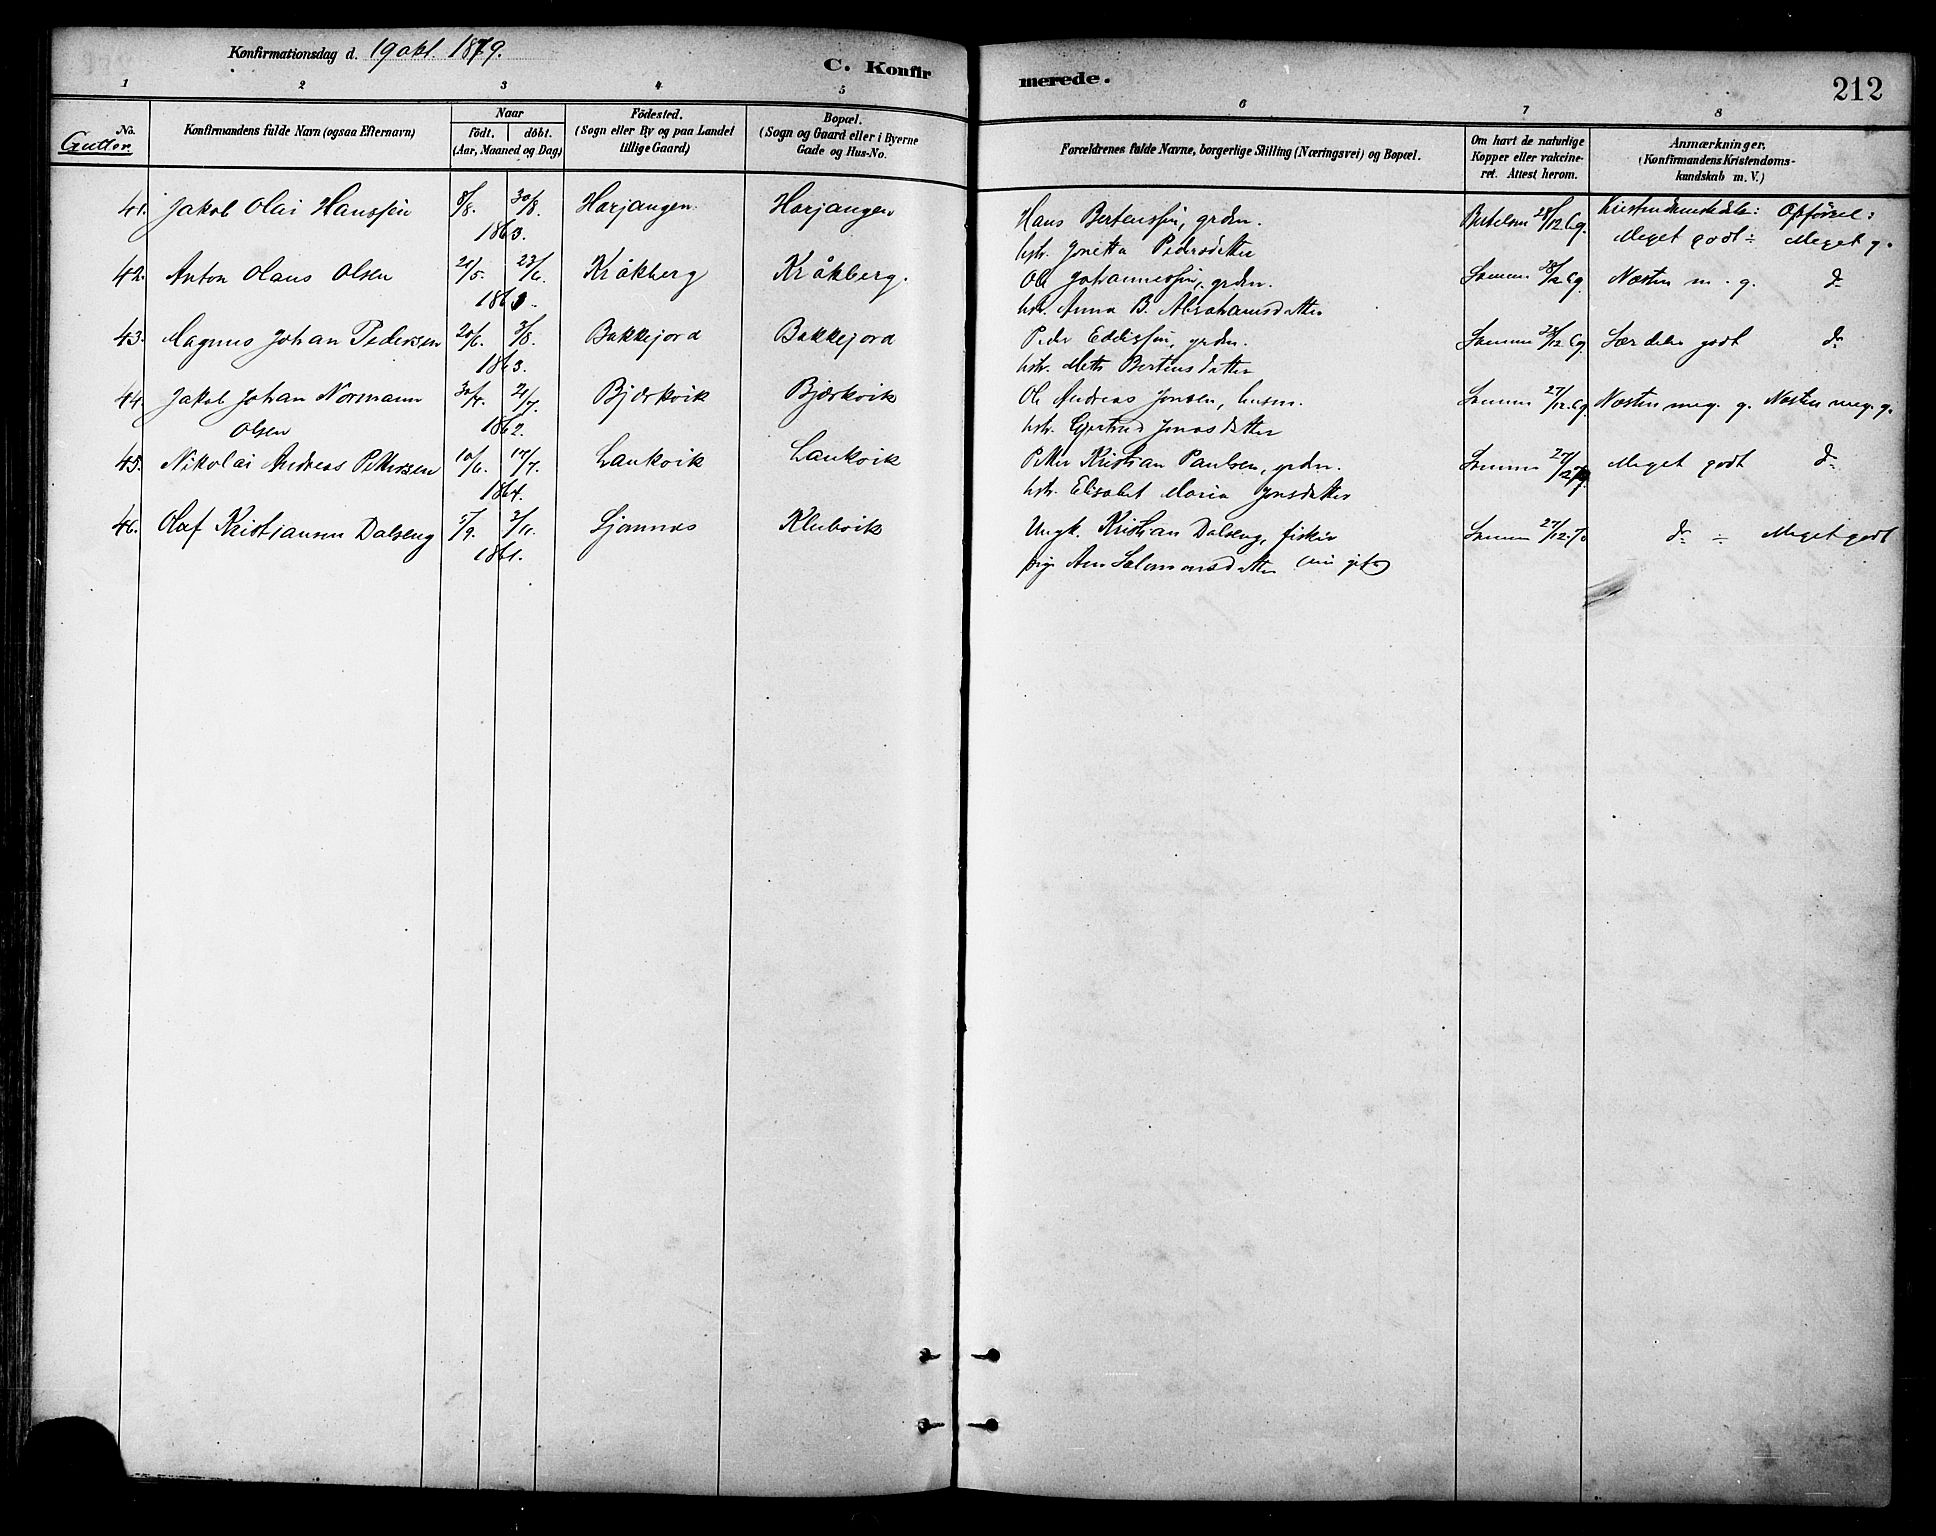 Konfirmationsdag d. 19 okt. 1879.
C. Konfirmerede.
212
1 2 3 4 5 6 7 8
No.
Gutter.
Konfirmandens fulde Navn (ogsaa Efternavn)
Naar
födt. döbt.
(Aar, Maaned og Dag)
Födested.
(Sogn eller By og paa Landet
tillige Gaard)
Bopæl.
(Sogn og Gaard eller i Byerne
Gade og Hus-No.
Forældrenes fulde Navne, borgerlige Stilling (Næringsvei) og Bopæl.
Om havt de naturlige
Kopper eller vakcine-
ret. Attest herom.
Anmærkninger.
(Konfirmandens Kristendoms-
kundskab m. V.)
Opförsel:
41. Jakob Olai Hanssen 8/8. 30/8. Harjangen Harjangen Hans Bertenssen, grdm. Bertelsen 28/12 69. Meget godt ÷ Meget g.
1863. hstr. Jonetta Pedersdatter
42. Anton Olaus Olsen 21/5. 28/6. Kråkberg Kråkberg. Ole Johannessen, grdm. Samme 28/12 69. Næsten m. g. do
1863. hstr. Anna B. Abrahamsdatter
43. Magnus Johan Pedersen 20/6. 3/8. Bakkejord Bakkejord Peder Eddissen, grdm. Samme 28/12 69. Særdeles godt do
1863. hstr. Mette Bertensdatter
44. Jakob Johan Normann 30/4. 21/7. Bjerkvik Bjerkvik Ole Andreas Jonsen, husm. Samme 27/12. 69. Næsten meg. g. Næsten meg. g.
Olsen 1862. hstr. Gjertrud Jonasdatter
45. Nikolai Andreas Pettersen 10/6. 17/7. Laukvik Laukvik Petter Kristian Paulsen, grdm. Samme Meget godt do
1864. hstr. Elisabet Maria Jonsdatter
46. Olaf Kristiansen Dalseng 5/9. 3/11. Klubvik Ungk. Kristian Dalseng, fisker Samme 27/12. 70 do ÷ Meget godt
1861. pige Ane Salomonsdatter